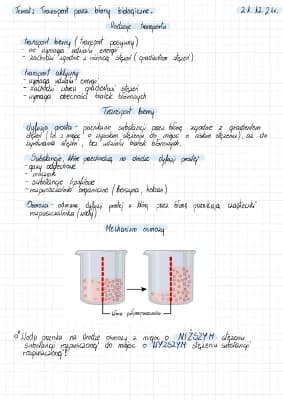 Temat: Transport przez błony biologiczne.
Rodzaje transportu
transport bierny (transport pasywny)
- nie wymaga udziału energii
- zachodzi zgodnie z różnicą stężeń (gradientem stężeń)
transport aktywny
- wymaga udziału energii
- zachodzi wbrew gradientowi stężeń
- wymaga obecności białek błonowych
Transport bierny
Dyfuzja prosta - przenikanie substancji przez błonę zgodnie z gradientem
stężeń (od miejsc o wysokim stężeniu do miejsc o niskim stężeniu), aż do
wyrównania stężeń, bez udziału białek błonowych.
Substancje, które przechodzą na drodze dyfuzji prostej
- gazy oddechowe
- mocznik
- substancje lipidowe
- rozpuszczalniki organiczne (benzyna,
Osmoza - odmiana dyfuzji prostej w której przez błonę przenikają cząsteczki
rozpuszczalnika (wody)
Mechanizm osmozy
błona półprzepuszczalna
Woda przenika na drodze osmozy z miejsc o NIŻSZYM stężeniu
substancji rozpuszczonej do miejsc o WYŻSZYM stężeniu substancji
rozpuszczonej!